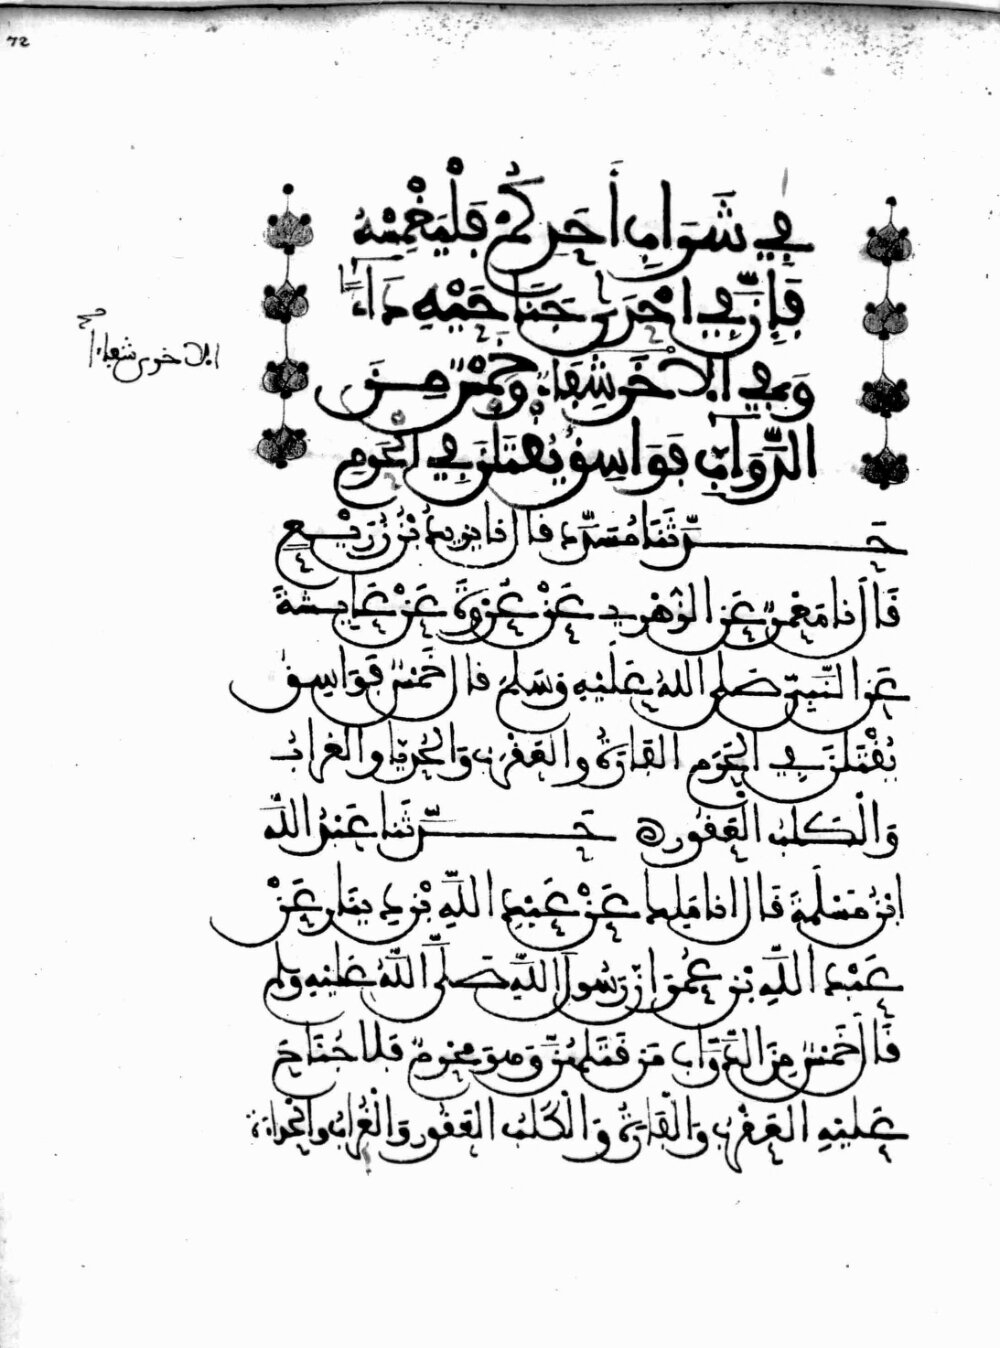 72
في شَرَابِ أَحَدِكُمْ فَلْيَغْمِسْهُ
فَإِنَّ فِي إِحْدَى جَنَاحَيْهِ دَاءً
وَفِي الْأُخْرَى شِفَاءً وَخَمْسٌ مِنَ
الدَّوَابِّ فَوَاسِقُ يُقْتَلْنَ فِي الْحَرَمِ
الاخرى شفاء
حَدَّثَنَا مُسَدَّد قال نا يزيدُ بْنُ زُرَيْعٍ
قَالَ نا مَعْمَرٌ عَنِ الزُّهْرِي عَنْ عُرْوَةَ عَنْ عَايِشَةَ
عَنِ النَّبِيِّ صَلى اللهُ عَلَيْهِ وَسَلم قال خَمْسٌ فَوَاسِقُ
يُقْتَلْنَ فِي الْحَرَمِ الفارَةُ والعَقْرَبُ وَالحُدَيَّا والغُرابُ
وَالْكَلْبُ الْعَقُور حَدَّثَنا عَبْدُ اللَّهِ
ابْنُ مَسْلَمَةَ قَال انا مَالِك عَنْ عَبْدِ اللَّهِ بْنِ دِينَار عَنْ
عَبْدِ اللَّهِ بْنِ عُمَرَ أنَّ رَسُولَ اللَّهِ صَلَّى اللَّهُ عَلَيْهِ وسلم
قَالَ خَمْسٌ مِنَ الدَّوَّابِ مَن قَتَلَهُنَّ وَهوَ محْرِمٌ فَلا جُنَاحَ
عَلَيْهِ العَقْرَبُ وَالْفَارَةُ وَالْكَلْبُ العَقُور وَالْغُرَابُ والْحِدَأَةُ